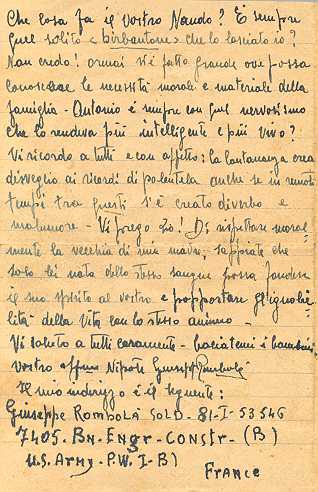 Che cosa fa il vostro Nando? È sempre
quel solito "birbantone" che lo lasciato io?
Non credo! ormai si è fatto grande ove possa
conoscere le necessità morali e materiale della
famiglia - Antonio è sempre con quel nervosismo
che lo rendeva più intelligente e più vivo?
Vi ricordo a tutti e con affetto: la lontananza crea
risveglio ai ricordi di parentela anche se in remoti
tempi tra questi s'è creato diverbo e
malumore - Vi prego Zio! Di rispettare moral
mente la vecchia di mia madre, sappiate che
solo lei nata dello stesso sangue possa fondere
il suo spirito al vostro e sopportare gl'ignobi
lità della vita con lo stesso animo -
Vi saluto a tutti caramente - baciatemi i bambini
vostro affmo Nipote Giuseppe Rombolà
Il mio indirizzo è il seguente:
Giuseppe ROMBOLÀ SOLD - 81-I-53546
7405. BN-Engr-CONSTR-(B)
U.S. ARMY - P.W. I-B)
FRANCE